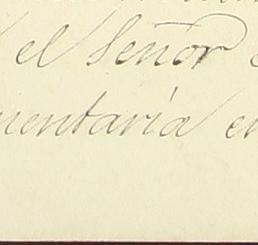 el Señor
mentaría en